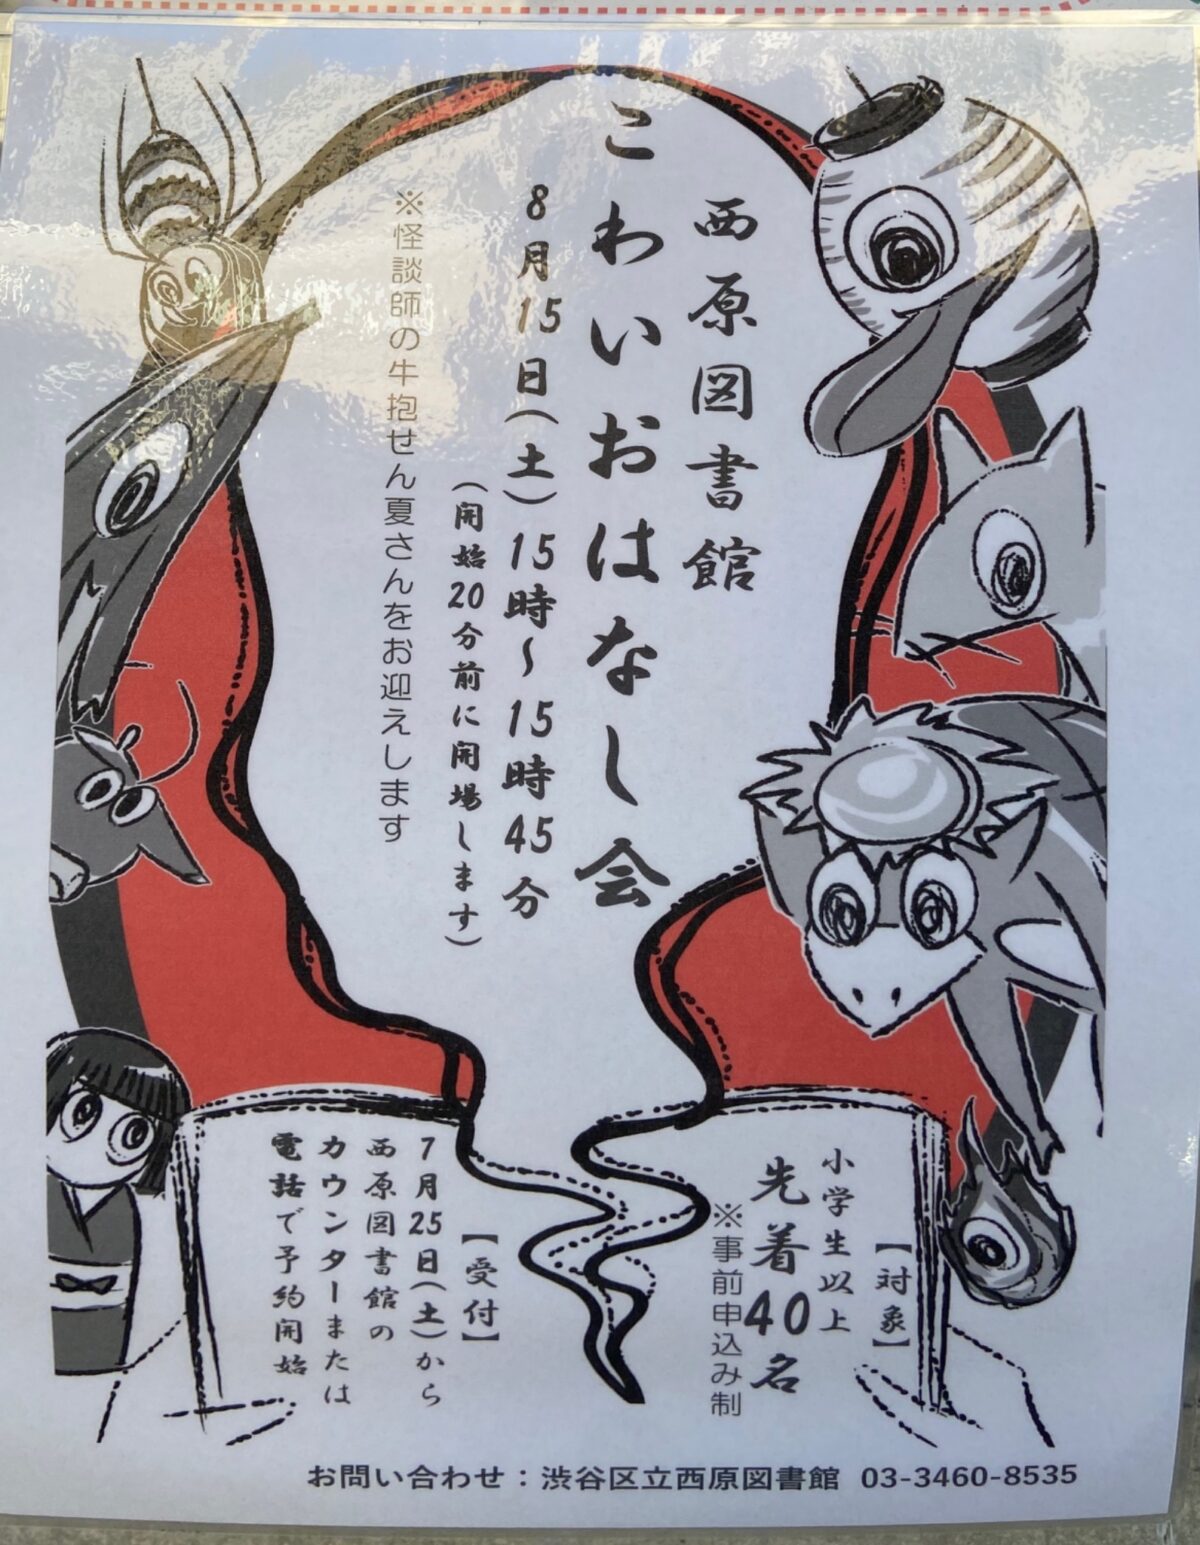 西原図書館
こわいおはなし会
8月15日(土)15時～15時45分
(開始20分前に開場します)
※怪談師の牛抱せん夏さんをお迎えします
【対象】
小学生以上
先着40名
※事前申込み制
【受付】
7月25日(土)から
西原図書館の
カウンターまたは
電話で予約開始
お問い合わせ：渋谷区立西原図書館 03-3460-8535